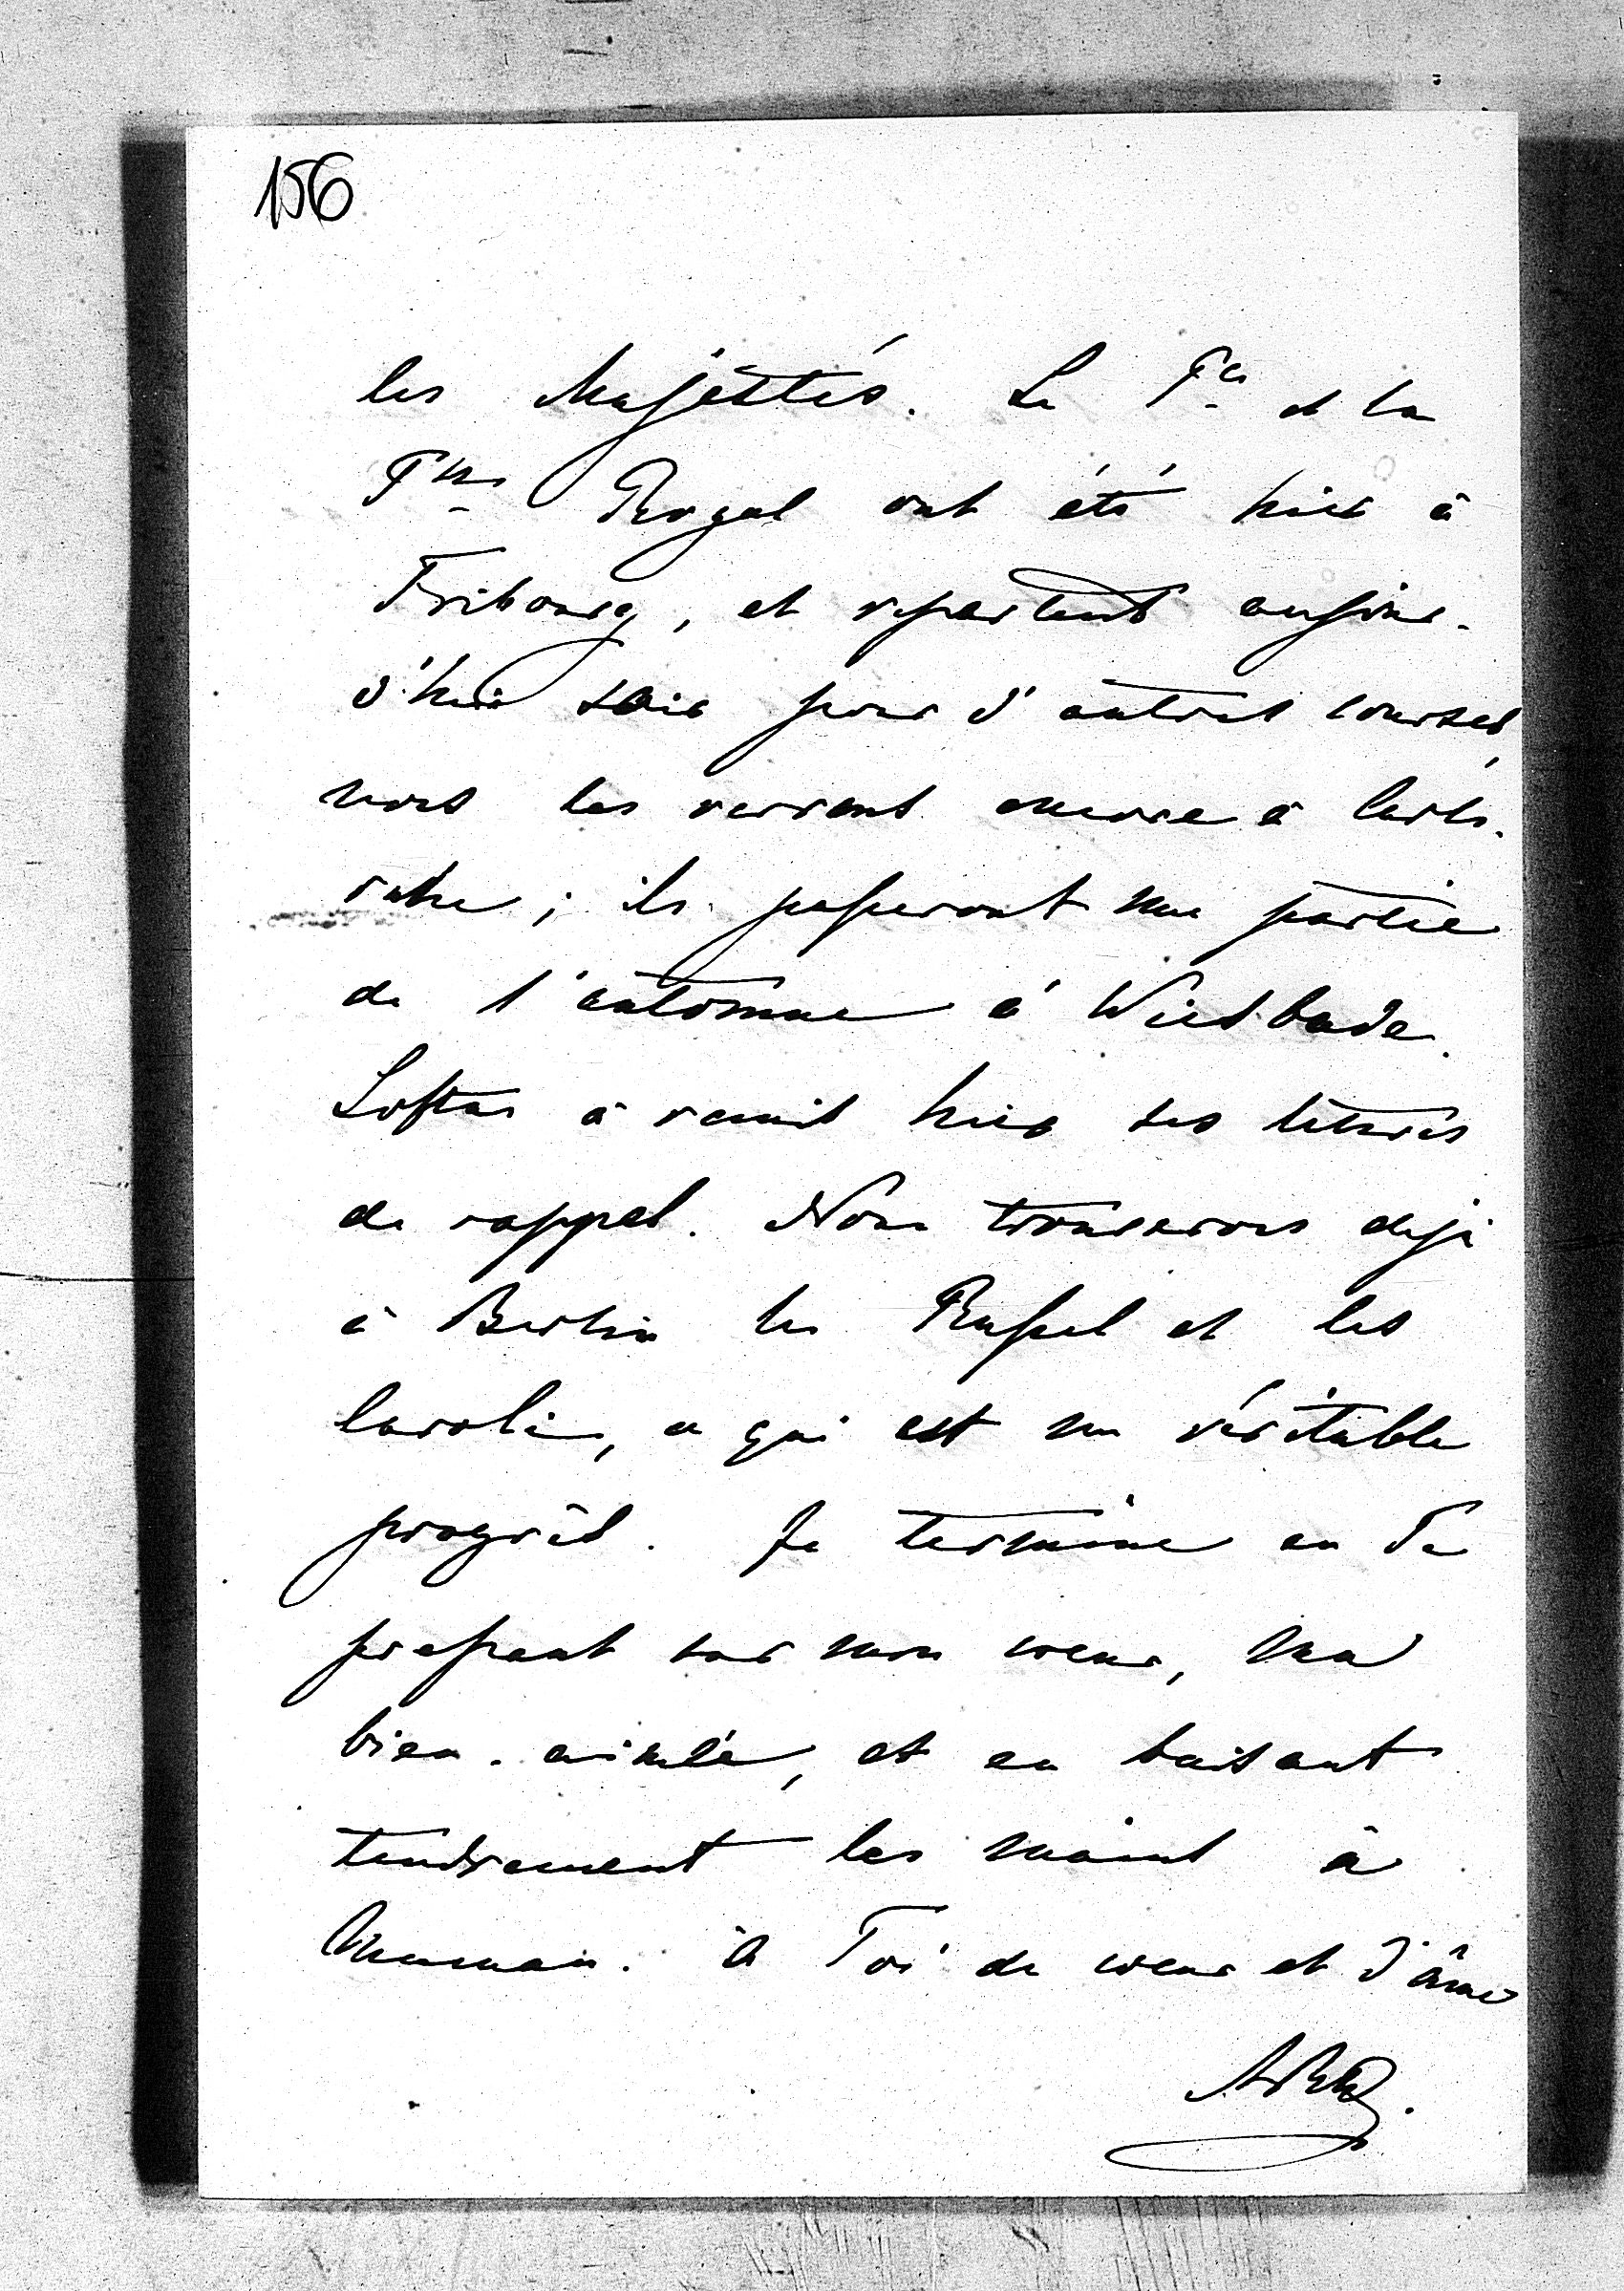 156
les Majestés. Le Pce et la
Psse Royal ont été hier à
Fribourg, et repartent aujour-
d'hui soir pour d'autres courses,
nous les verront encore à Carls-
ruhe; ils passeront une partie
de l'automne à Wiesbade.
Loftus a remis hier ses lettres
de rappel. Nous trouverons deja
à Berlin les Russel et les
Caroli, ce qui est un véritable
progrès. Je termine en Te
pressant sur mon coeur, ma
bien-aimée, et en baisant
tendrement les mains à
Maman. à Toi de coeur et d'âme